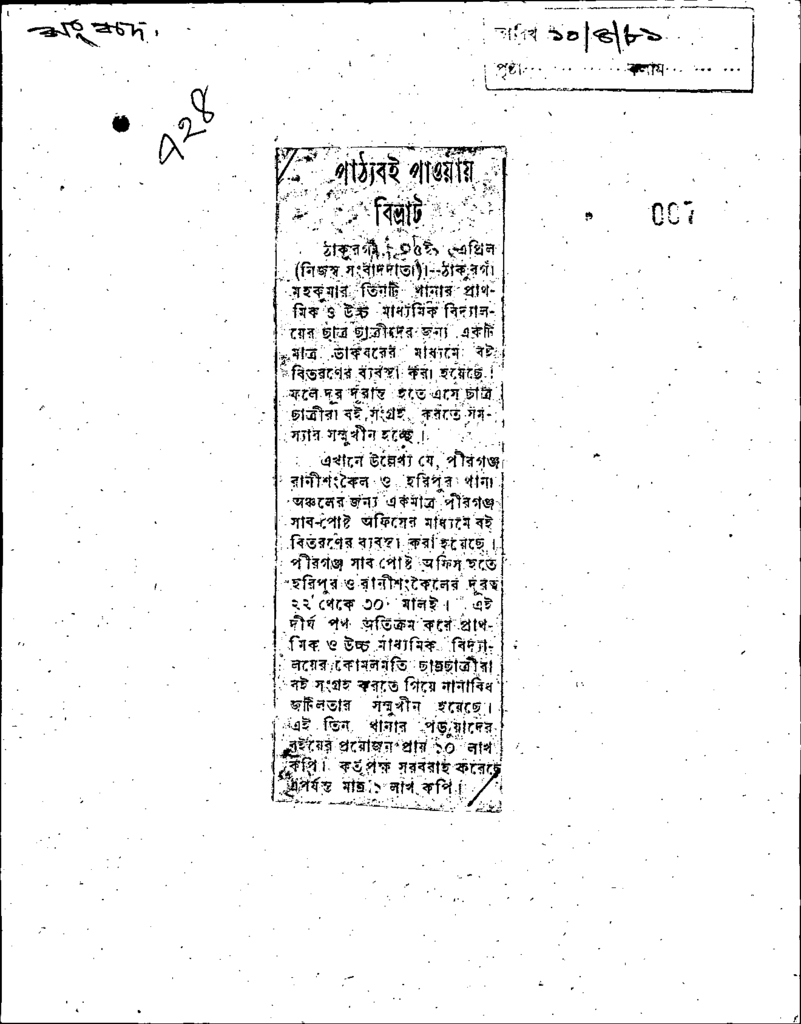 সংবাদ.
তারিখ ১০/৪/৮১
পৃষ্ঠা... কলাম...
৭২৪
007
পাঠ্যবই পাওয়ায়
বিভ্রাট
ঠাকুরগাঁ, এপ্রিল
(নিজস্ব সংবাদদাতা)।--ঠাকুরগাঁ
মহকুমার তিনটি থানার প্রাথ-
মিক ও উচ্চ মাধ্যমিক বিদ্যাল-
য়ের ছাত্র ছাত্রীদের জন্য একটি
মাত্র ডাকঘরের মাধ্যমে বই
বিতরণের ব্যবস্থা করা হয়েছে।
ফলে দূর দূরান্ত হতে এসে ছাত্র
ছাত্রীরা বই সংগ্রহ করতে সম-
স্যার সম্মুখীন হচ্ছে।
এখানে উল্লেখ্য যে, পীরগঞ্জ
রানীশংকৈল ও হরিপুর থানা
অঞ্চলের জন্য একমাত্র পীরগঞ্জ
সাব-পোষ্ট অফিসের মাধ্যমে বই
বিতরণের ব্যবস্থা করা হয়েছে।
পীরগঞ্জ সাব পোষ্ট অফিস হতে
হরিপুর ও রানীশংকৈলের দূরত্ব
২২ থেকে ৩০ মাইল। এই
দীর্ঘ পথ অতিক্রম করে প্রাথ-
মিক ও উচ্চ মাধ্যমিক বিদ্যা-
লয়ের কোমলমতি ছাত্রছাত্রীরা
বই সংগ্রহ করতে গিয়ে নানাবিধ
জটিলতার সম্মুখীন হয়েছে।
এই তিন থানার পড়ুয়াদের
বইয়ের প্রয়োজন প্রায় ১০ লাখ
কপি। কর্তৃপক্ষ সরবরাহ করেছে
এপর্যন্ত মাত্র ১ লাখ কপি।